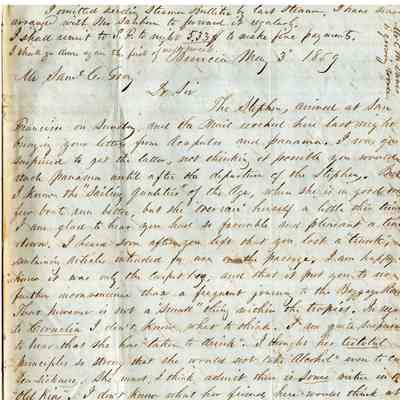 I omitted sending Steamer Bulletin by last Steamer. I have since
arrange with Mr to forward it regularly.
I shall remit to S. F. to night 533$ to make five payments.
I shall go down again the first of next week.
Benicia May 3d 1859
Mr Saml. C. Gray
Dr Sir
The Stephens, arrived at San
Francisco on Sunday, and the Mail reached here last night
bringing your letters from Acapulco and panama. I was quite
surprised to get the latter, not thinking it possible you would
reach panama until after the departure of the Stephens. But
I know the "Sailing qualities" of the Age, when she is in good
few boats run better, but she "over ran" herself a little this time
I am glad to hear you had so favorable and pleasant a time
down. I heard soon after you left that you lost a trunk,
containing articles intended for use on the passage. I am happy to
know it was only the carpet bag, and that it put you to no
further inconvenience than a frequent journey to the Baggage Room
That however is not a small thing within the tropics. In regard
to Cornelia I don't know what to think. I am quite surprised
to hear that she has "taken to drink". I thought her teetotal
principles so strong that she would not take Alcohol even to cure
Sea Sickness, she must, I think admit there is some virtue in
Old King. I don't know what her friends here would think